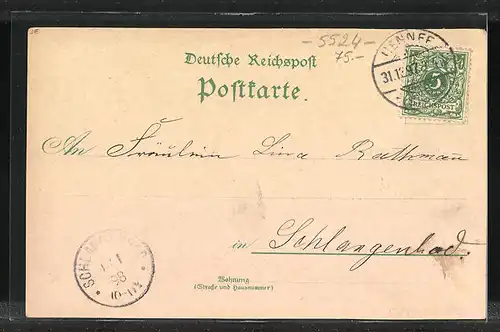 - 5524 -
75.-
Deutsche Reichspost
Postkarte.
HENNEF
31.12.97
5
REICHSPOST
An Fräulein Lina Rathmann
in Schlangenbad.
SCHLANGENBAD
1 1
98
Wohnung
(Straße und Hausnummer)